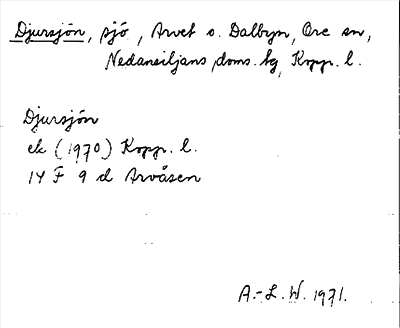 Djursjön, sjö, Arvet o. Dalbyn, Ore sn,
Nedansiljans doms. hg, Kopp. l.
Djursjön
ek (1970) Kopp. l.
14 F 9 d Arvåsen
A.-L. W. 1971.